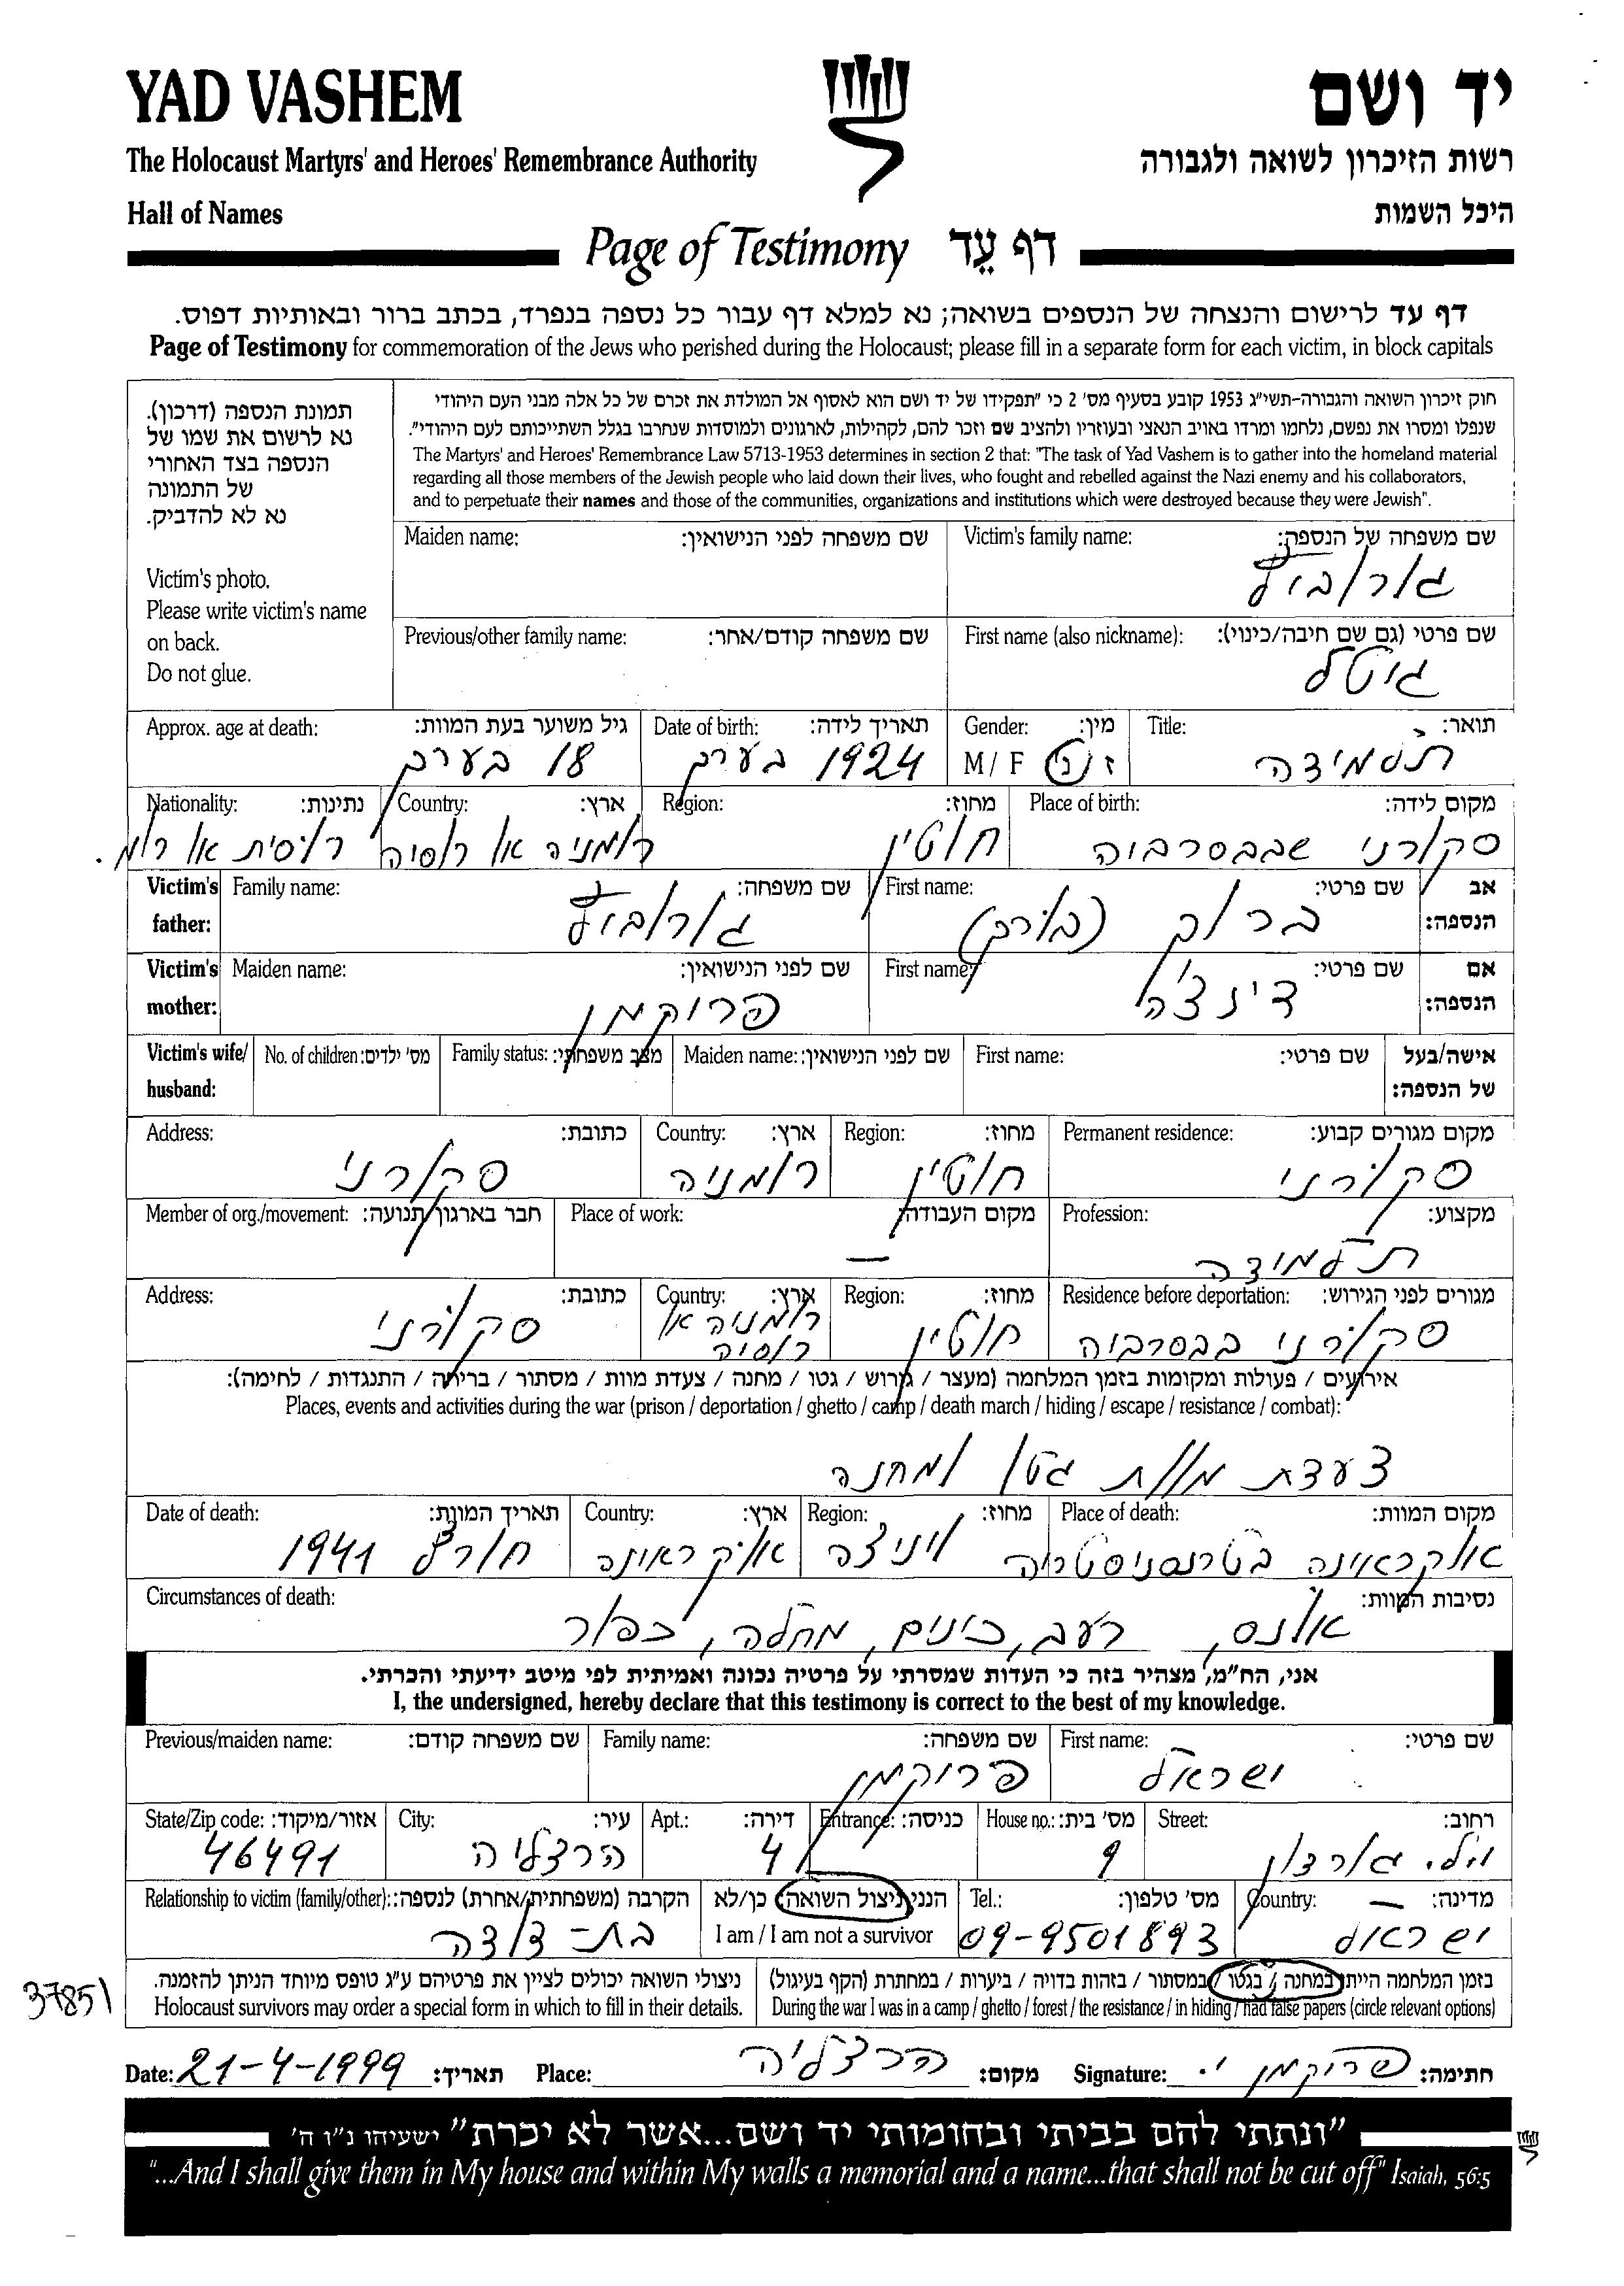 YAD VASHEM
יד ושם
The Holocaust Martyrs' and Heroes' Remembrance Authority
רשות הזיכרון לשואה ולגבורה
Hall of Names
היכל השמות
Page of Testimony דף עֵד
דף עד לרישום והנצחה של הנספים בשואה; נא למלא דף עבור כל נספה בנפרד, בכתב ברור ובאותיות דפוס.
Page of Testimony for commemoration of the Jews who perished during the Holocaust; please fill in a separate form for each victim, in block capitals
תמונת הנספה (דרכון).
נא לרשום את שמו של
הנספה בצד האחורי
של התמונה
נא לא להדביק.
Victim's photo.
Please write victim's name
on back.
Do not glue.
חוק זיכרון השואה והגבורה-תשי"ג 1953 קובע בסעיף מס' 2 כי "תפקידו של יד ושם הוא לאסוף אל המולדת את זכרם של כל אלה מבני העם היהודי
שנפלו ומסרו את נפשם, נלחמו ומרדו באויב הנאצי ובעוזריו ולהציב שם וזכר להם, לקהילות, לארגונים ולמוסדות שנחרבו בגלל השתייכותם לעם היהודי".
The Martyrs' and Heroes' Remembrance Law 5713-1953 determines in section 2 that: "The task of Yad Vashem is to gather into the homeland material
regarding all those members of the Jewish people who laid down their lives, who fought and rebelled against the Nazi enemy and his collaborators,
and to perpetuate their names and those of the communities, organizations and institutions which were destroyed because they were Jewish".
שם משפחה של הנספה: Victim's family name:
שם משפחה לפני הנישואין: Maiden name:
גורוביץ
שם פרטי (גם שם חיבה/כינוי): First name (also nickname):
שם משפחה קודם/אחר: Previous/other family name:
גיטל
תואר: Title:
תלמידה
מין: Gender:
ז/נ M/ F
תאריך לידה: Date of birth:
1924 בערך
גיל משוער בעת המוות: Approx. age at death:
18 בערך
מקום לידה: Place of birth:
סקורני שבבסרביה
מחוז: Region:
חוטין
ארץ: Country:
רומניה או רוסיה
נתינות: Nationality:
רוסית או רומ.
אב הנספה: Victim's father:
שם פרטי: First name:
ברוך (בורך)
שם משפחה: Family name:
גורוביץ
אם הנספה: Victim's mother:
שם פרטי: First name:
דינצ'ה
שם לפני הנישואין: Maiden name:
פרוקמן
אישה/בעל של הנספה: Victim's wife/ husband:
שם פרטי: First name:
שם לפני הנישואין: Maiden name:
מצב משפחתי: Family status:
מס' ילדים: No. of children:
מקום מגורים קבוע: Permanent residence:
סקורני
מחוז: Region:
חוטין
ארץ: Country:
רומניה
כתובת: Address:
סקורני
מקצוע: Profession:
תלמידה
מקום העבודה: Place of work:
—
חבר בארגון/תנועה: Member of org./movement:
מגורים לפני הגירוש: Residence before deportation:
סקורני בבסרביה
מחוז: Region:
חוטין
ארץ: Country:
רומניה או
רוסיה
כתובת: Address:
סקורני
אירועים / פעולות ומקומות בזמן המלחמה (מעצר / גירוש / גטו / מחנה / צעדת מוות / מסתור / בריחה / התנגדות / לחימה):
Places, events and activities during the war (prison / deportation / ghetto / camp / death march / hiding / escape / resistance / combat):
צעדת מוות גטו ומחנה
מקום המוות: Place of death:
אוקראינה בטרנסניסטריה
מחוז: Region:
ויניצה
ארץ: Country:
אוקראינה
תאריך המוות: Date of death:
חורף 1941
נסיבות המוות: Circumstances of death:
אונס, רעב, כינים, מחלה, כפור
אני, הח"מ, מצהיר בזה כי העדות שמסרתי על פרטיה נכונה ואמיתית לפי מיטב ידיעתי והכרתי.
I, the undersigned, hereby declare that this testimony is correct to the best of my knowledge.
שם פרטי: First name:
ישראל
שם משפחה: Family name:
פרוקמן
שם משפחה קודם: Previous/maiden name:
רחוב: Street:
מס' בית: House no.:
9
כניסה: Entrance:
דירה: Apt.:
4
עיר: City:
הרצליה
אזור/מיקוד: State/Zip code:
46491
מדינה: Country:
ישראל
מס' טלפון: Tel.:
09-9501893
הנני ניצול השואה: כן/לא
I am / I am not a survivor
הקרבה (משפחתית/אחרת) לנספה: Relationship to victim (family/other):
בת-דודה
בזמן המלחמה הייתי במחנה / בגטו / במסתור / בזהות בדויה / ביערות / במחתרת (הקף בעיגול)
During the war I was in a camp / ghetto / forest / the resistance / in hiding / had false papers (circle relevant options)
ניצולי השואה יכולים לציין את פרטיהם ע"ג טופס מיוחד הניתן להזמנה.
Holocaust survivors may order a special form in which to fill in their details.
37851
חתימה: פרוקמן י. Signature:
מקום: הרצליה Place:
תאריך: 21-4-1999 Date:
"ונתתי להם בביתי ובחומותי יד ושם...אשר לא יכרת" ישעיהו נ"ו ה'
"...And I shall give them in My house and within My walls a memorial and a name...that shall not be cut off" Isaiah, 56:5